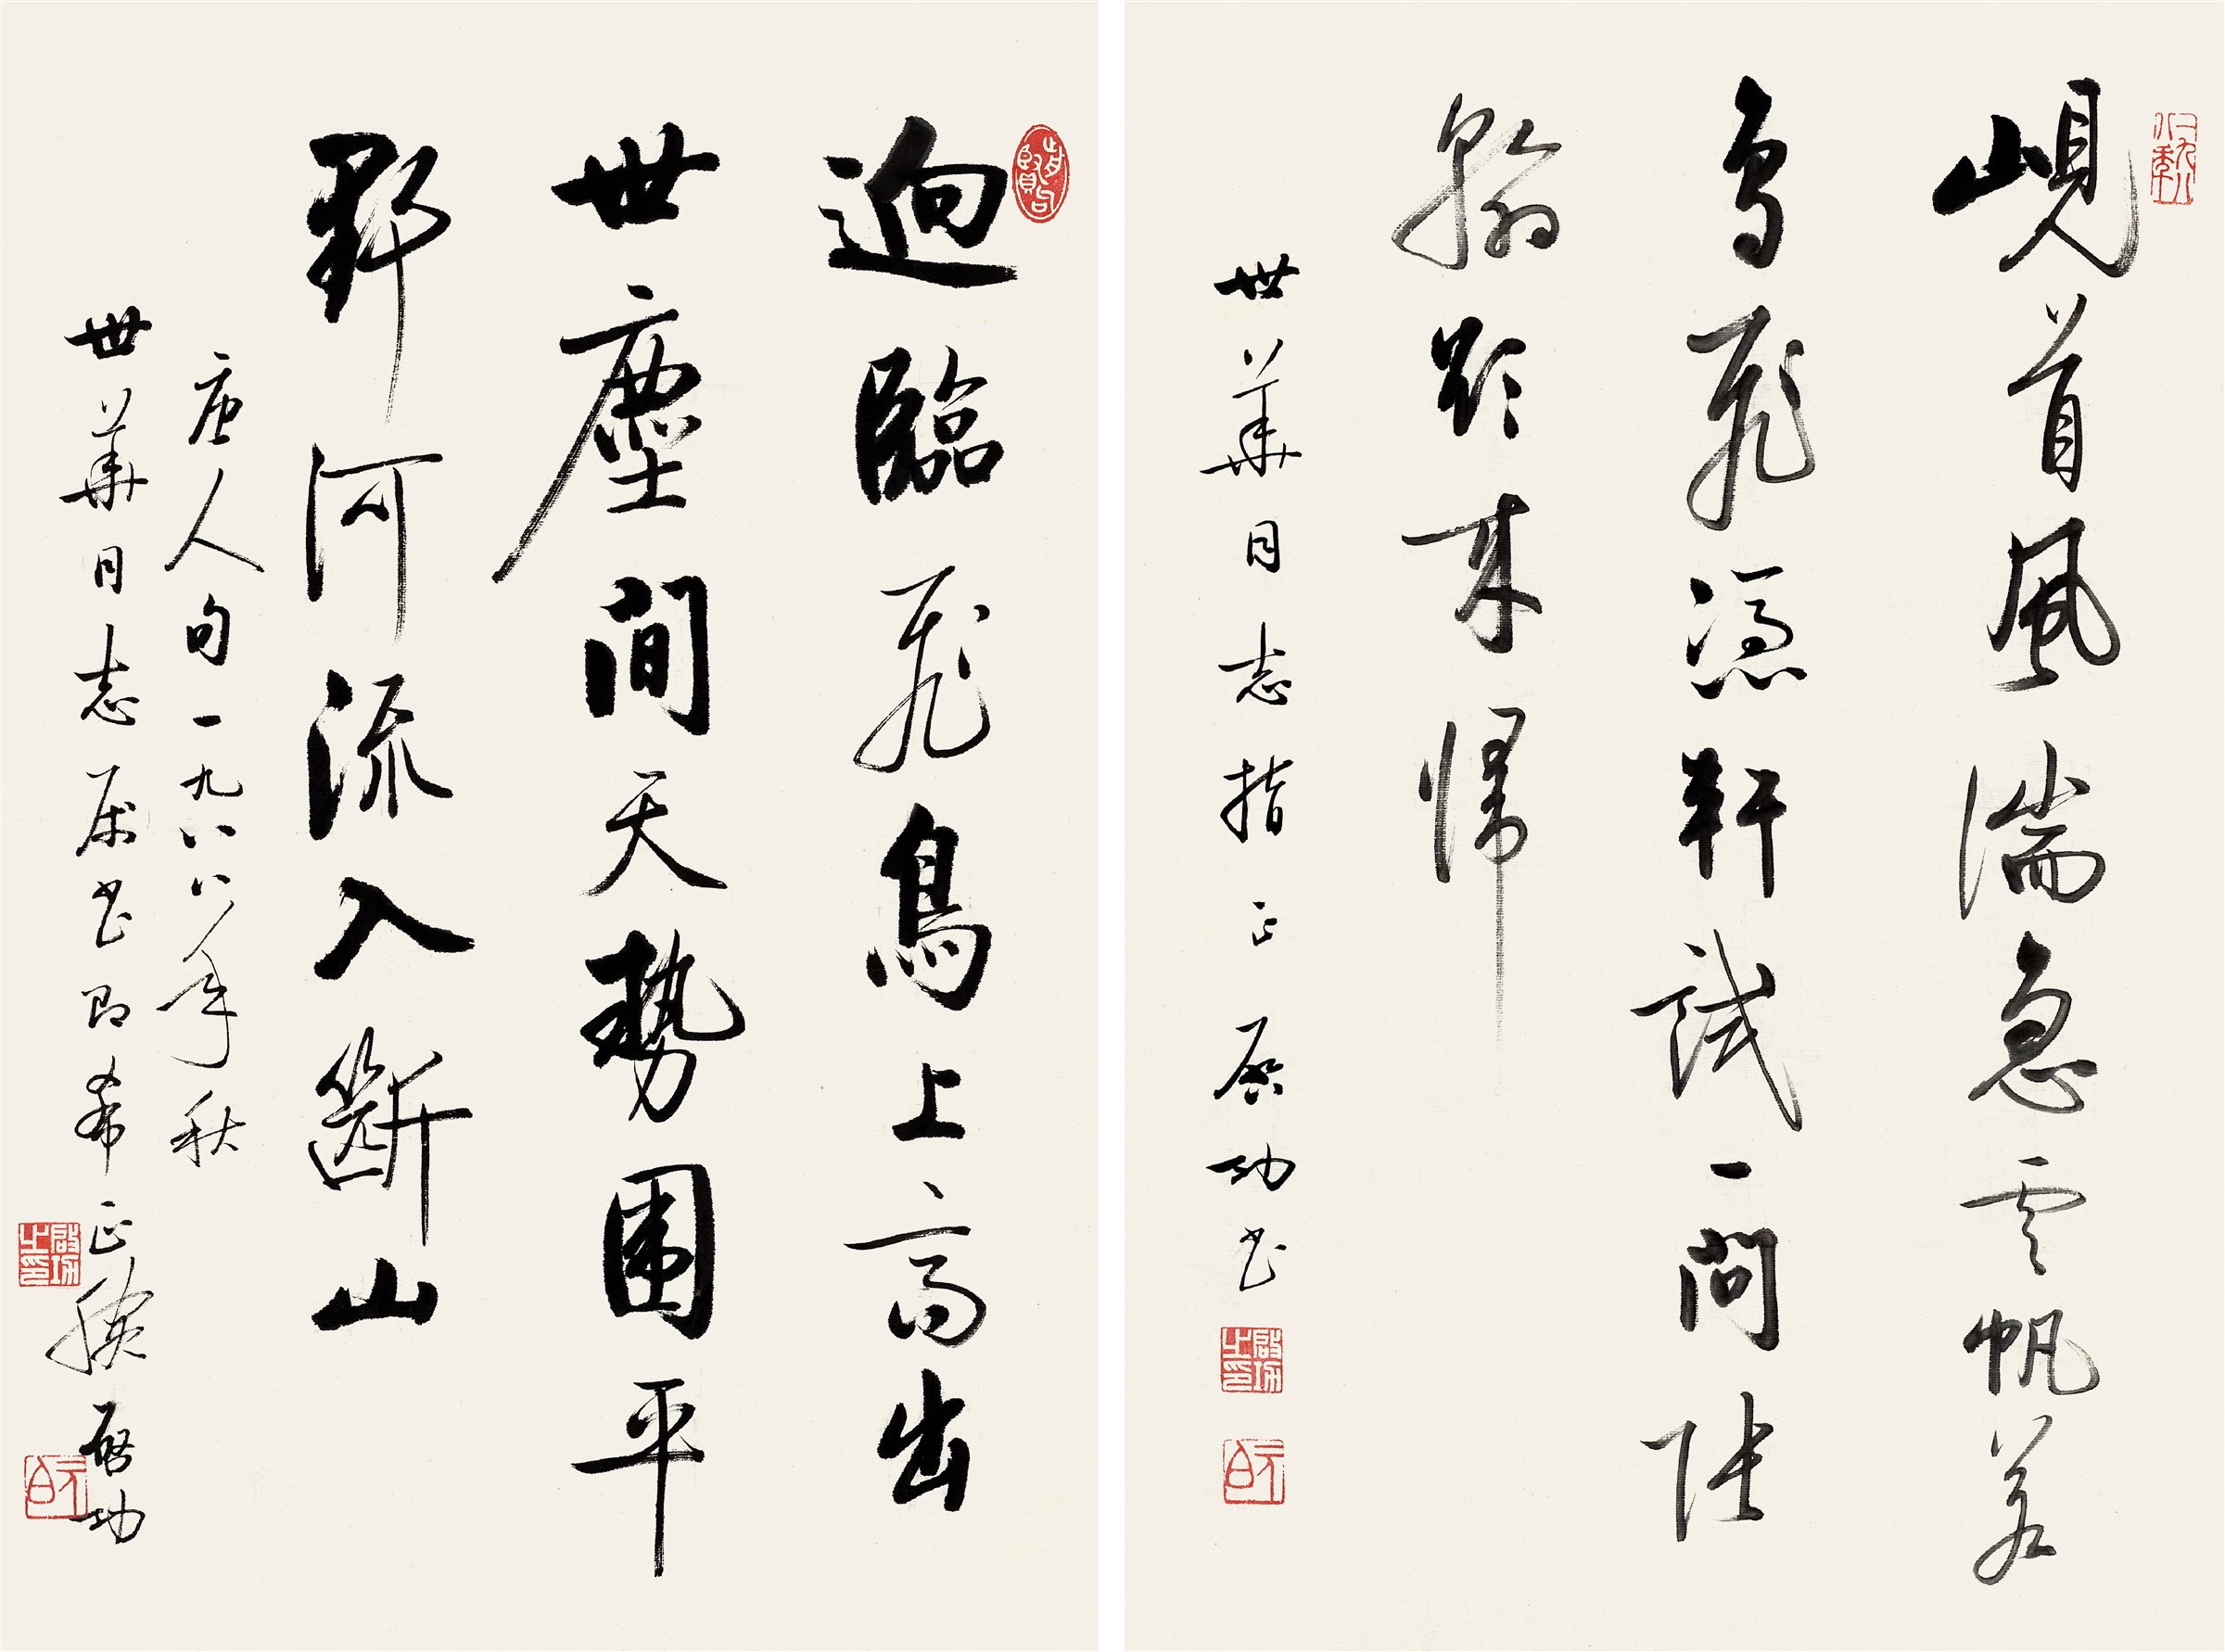 峴首風湍急雲帆若
鳥飛憑軒試一問張
翰欲来歸
世華同志指正 启功书
啟功之印
元白
迥臨飛鳥上高出
世塵間天勢圍平
野河流入斷山
唐人句一九八八年秋
世華同志属书即希正腕 启功
啟功之印
元白